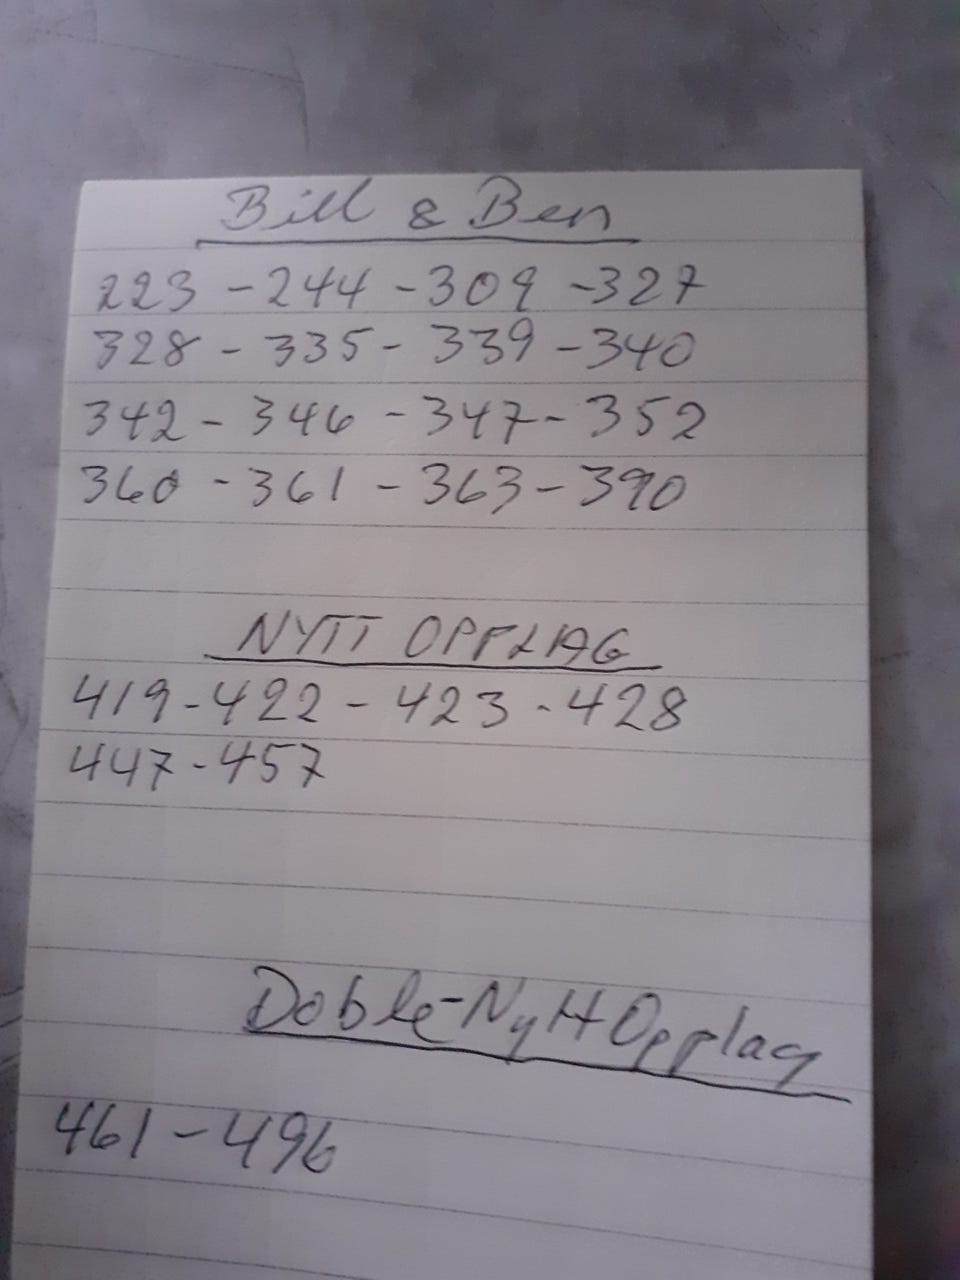 Bill & Ben
223 - 244 - 309 - 327
328 - 335 - 339 - 340
342 - 346 - 347 - 352
360 - 361 - 363 - 390
NYTT OPPLAG
419 - 422 - 423 - 428
447 - 457
Doble-Nytt Opplag
461 - 496